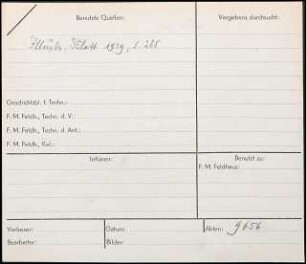 Benutzte Quellen:
Vergebens durchsucht:
Blatt 1929, S. 288
Geschichtsbl. f. Techn.:
F. M. Feldh., Techn. d. V.:
F. M. Feldh., Techn. d. Ant.:
F. M. Feldh., Kal.:
Irrtümer:
Benutzt zu:
F. M. Feldhaus:
Verfasser:
Datum:
Akten: 9656
Bearbeiter:
Bilder: